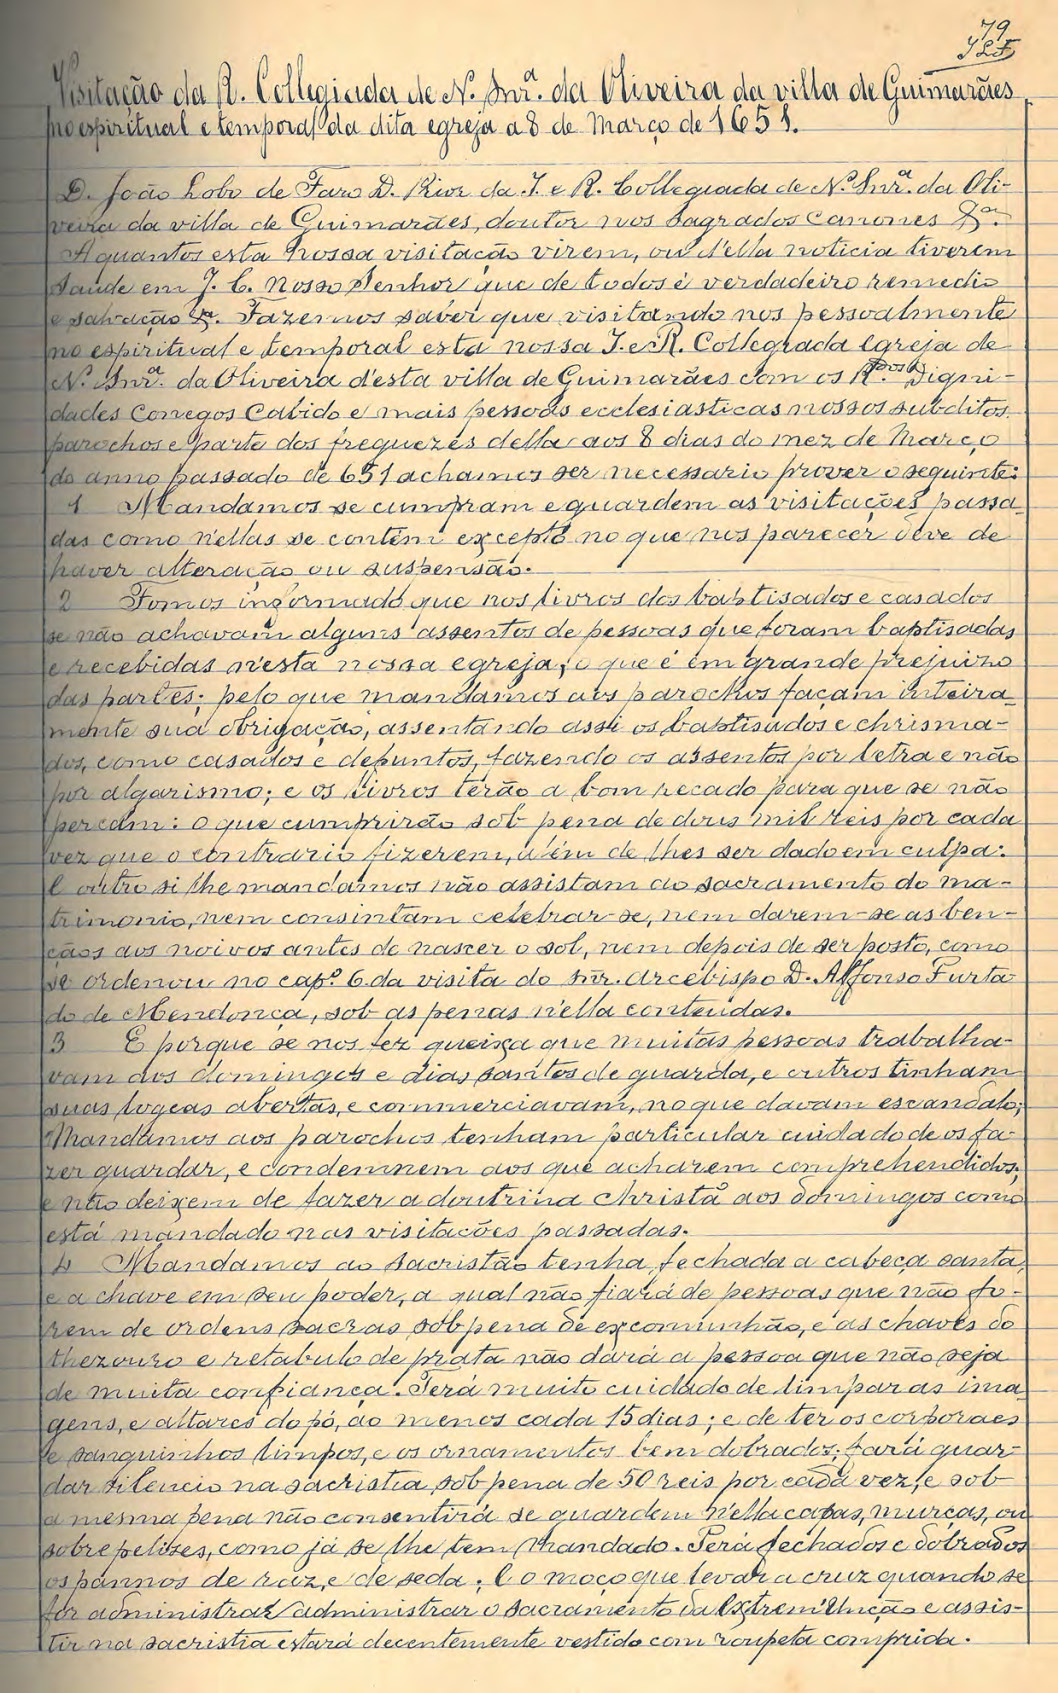 79
Visitação da R. Collegiada de N. Snrª. da Oliveira da villa de Guimarães
no espiritual e temporal da dita egreja a 8 de Março de 1651.
D. João Lobo de Faro D. Prior da I. e R. Collegiada de N. Snrª. da Oli-
veira da villa de Guimarães, doutor nos sagrados canones &ª.
A quantos esta nossa visitação virem, ou d'ella noticia tiverem
saude em J. C. Nosso Senhor que de todos é verdadeiro remedio
e salvação &ª. Fazemos saber que visitando nos pessoalmente
no espiritual e temporal esta nossa I. e R. Collegiada Egreja de
N. Snrª. da Oliveira d'esta villa de Guimarães com os R.dos Digni-
dades Conegos Cabido e mais pessoas ecclesiasticas nossos subditos
parochos e parte dos freguezes della aos 8 dias do mez de Março
do anno passado de 651 achamos ser necessario prover o seguinte:
1 Mandamos se cumpram e guardem as visitações passa-
das como n'ellas se contêm excepto no que nos parecer deve de
haver alteração ou suspensão.
2 Fomos informado que nos livros dos baptisados e casados
se não achavam alguns assentos de pessoas que foram baptisadas
e recebidas n'esta nossa egreja, o que é em grande prejuizo
das partes; pelo que mandamos aos parochos façam inteira-
mente sua obrigação, assentando assi os baptisados e chrisma-
dos, como casados e defuntos, fazendo os assentos por letra e não
por algarismo; e os livros terão a bom recado para que se não
percam: o que cumprirão sob pena de dous mil reis por cada
vez que o contrario fizerem, além de lhes ser dado em culpa:
E outro si lhe mandamos não assistam ao sacramento do ma-
trimonio, nem consintam celebrar-se, nem darem-se as ben-
çãos aos noivos antes de nascer o sol, nem depois de ser posto, como
se ordenou no cap.º 6 da visita do snr. arcebispo D. Affonso Furta
do de Mendonça, sob as penas n'ella conteudas.
3 E porque se nos fez queixa que muitas pessoas trabalha-
vam aos domingos e dias santos de guarda, e outros tinham
suas logeas abertas, e commerciavam, no que davam escandalo;
Mandamos aos parochos tenham particular cuidado de os fa-
zer guardar, e condemnem aos que acharem comprehendidos,
e não deixem de fazer a doutrina christã aos domingos como
está mandado nas visitações passadas.
4 Mandamos ao sacristão tenha fechada a cabeça santa,
e a chave em seu poder, a qual não fiará de pessoas que não fo-
rem de ordens sacras sob pena de excomunhão, e as chaves do
thezouro e retabulo de prata não dará a pessoa que não seja
de muita confiança. Terá muito cuidado de limpar as ima-
gens, e altares do pó, ao menos cada 15 dias; e de ter os corporaes
e sanguinhos limpos, e os ornamentos bem dobrados; fará guar-
dar silencio na sacristia sob pena de 50 reis por cada vez, e sob
a mesma pena não consentirá se guardem n'ella capas, murças, ou
sobrepelizes, como já se lhe tem mandado. Terá fechados e dobrados
os pannos de raz, e de seda. E o moço que levar a cruz quando se
for administrar administrar o sacramento da Extrem'Uncção e assis-
tir na sacristia estará decentemente vestido com roupeta comprida.